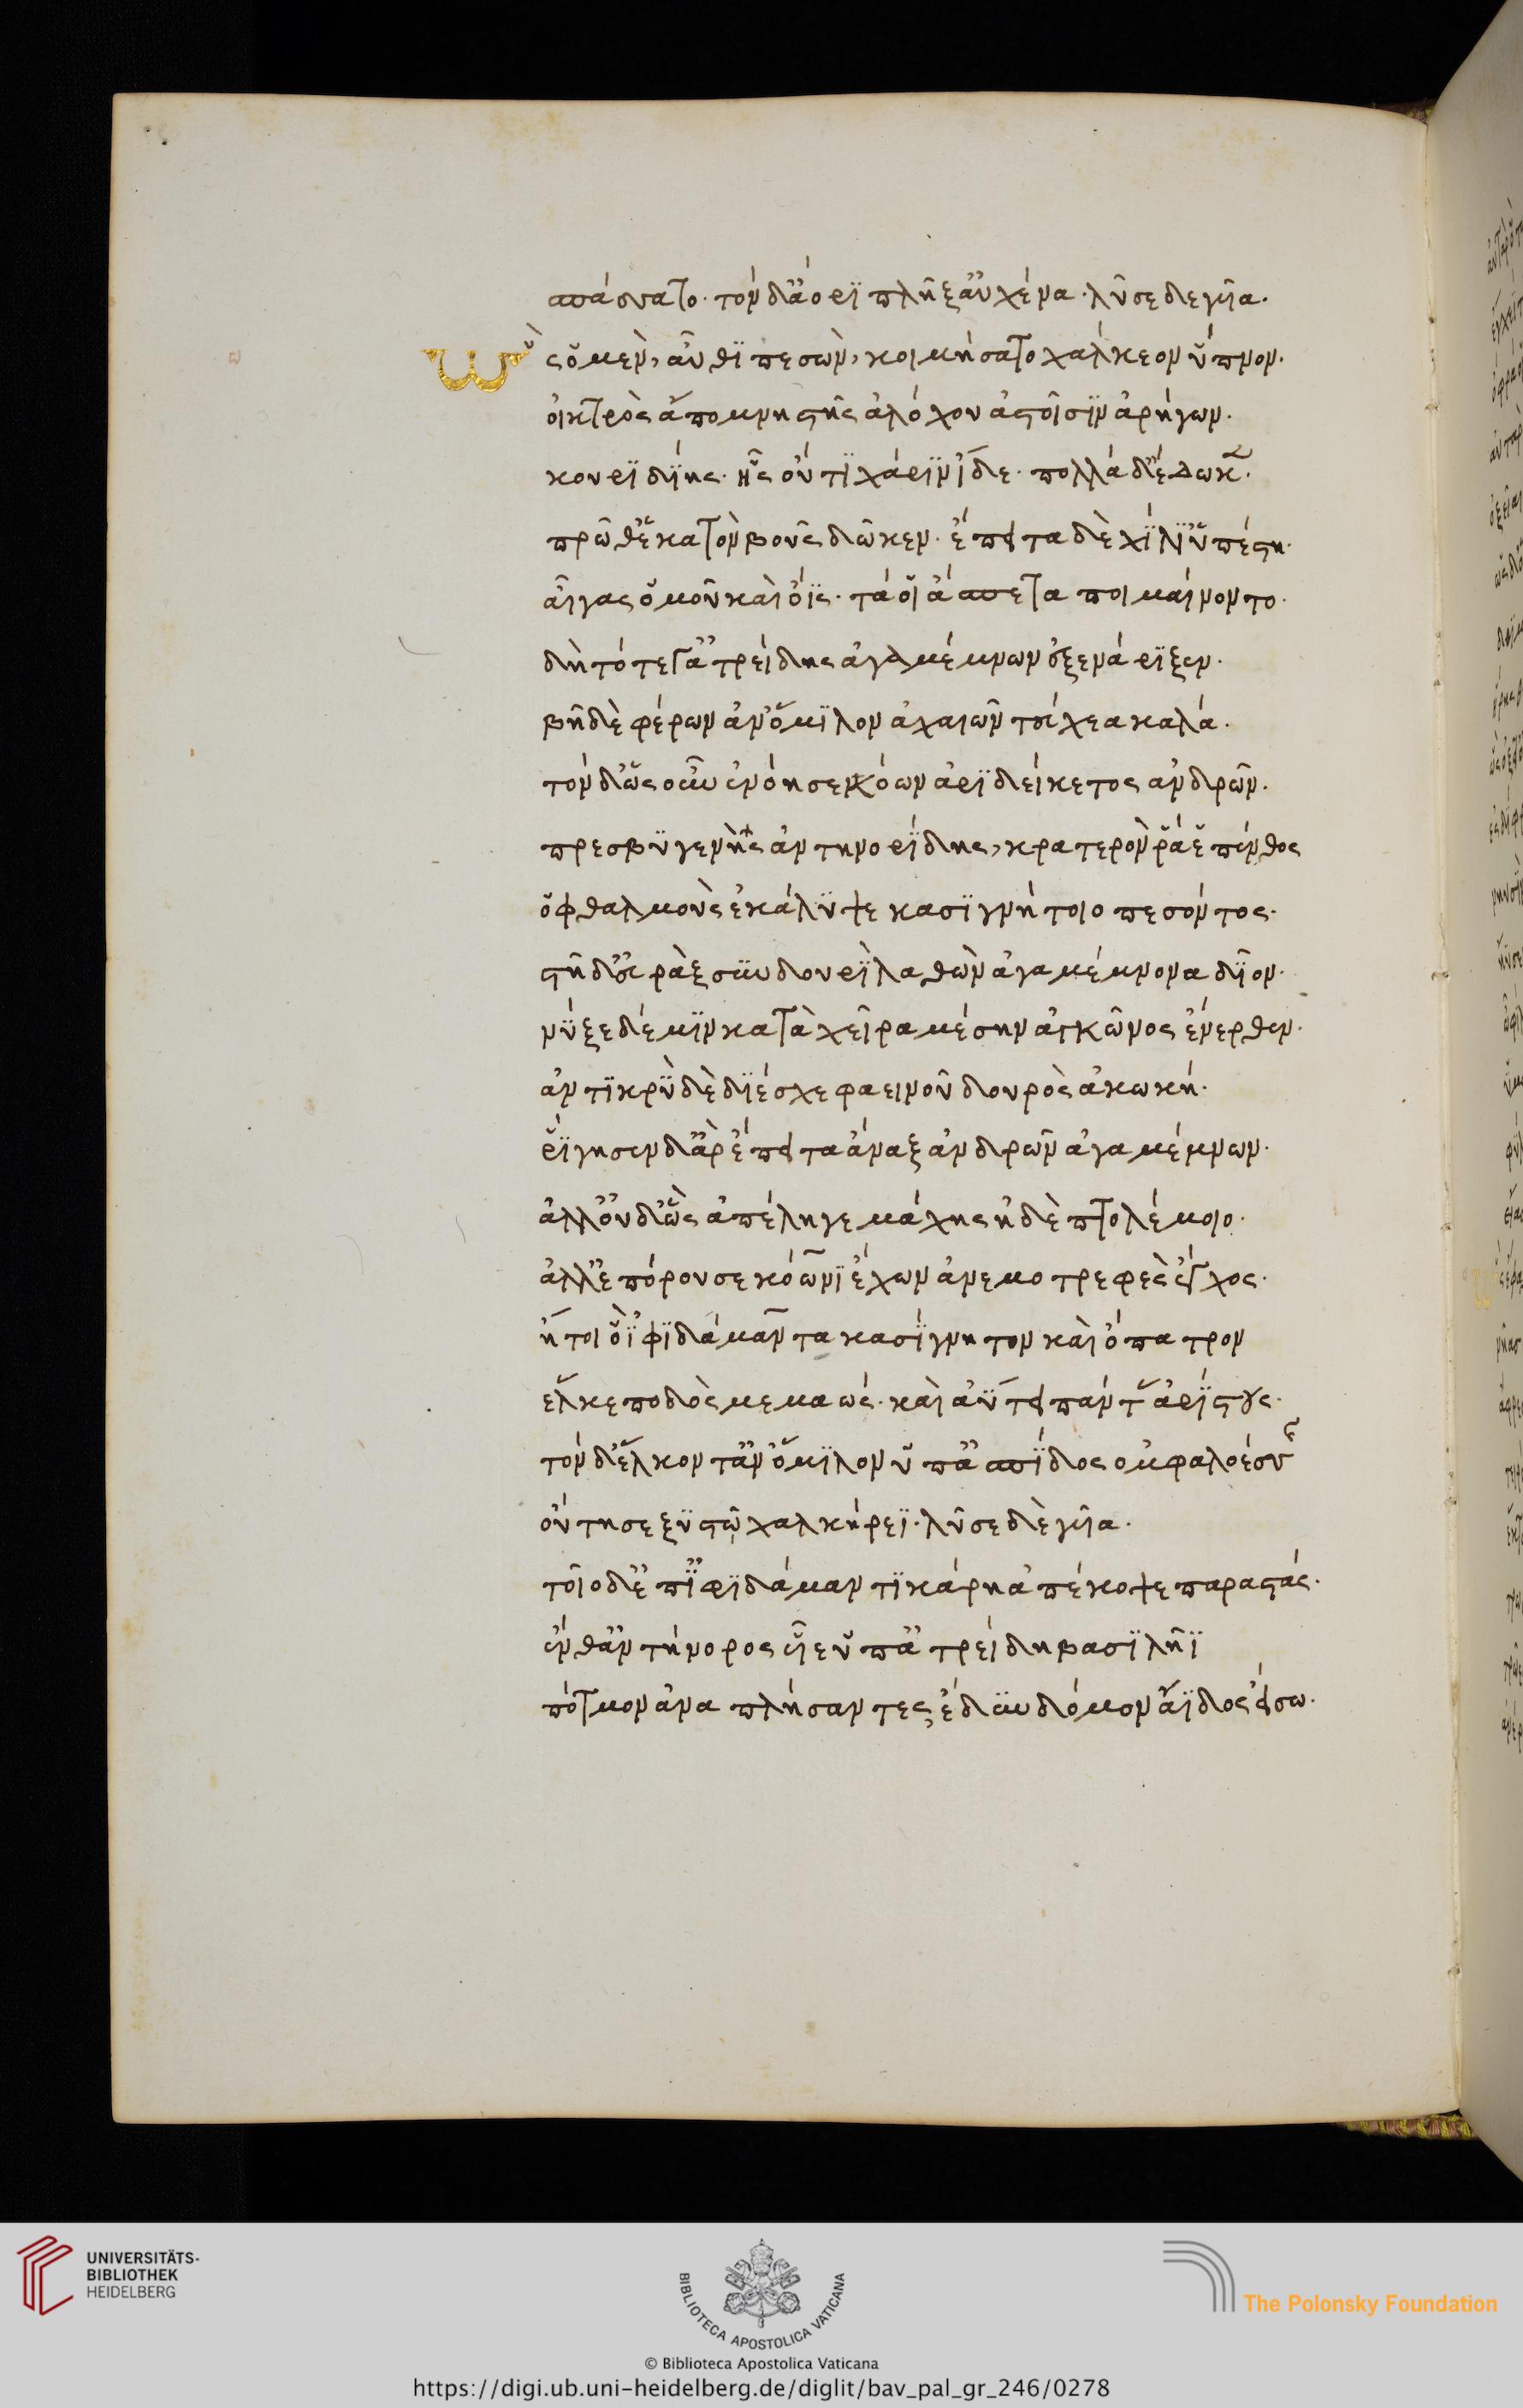 σπάσσατο. τὸν δ' ἄορι πλῆξ' αὐχένα. λῦσε δὲ γυῖα.
Ὣς ὁ μὲν, αὖθι πεσὼν, κοιμήσατο χάλκεον ὕπνον.
οἰκτρὸς ἄπο μνηστῆς ἀλόχου ἀστοῖσιν ἀρήγων.
κουριδίης. ἧς οὔτι χάριν ἴδε. πολλὰ δ' ἔδωκε.
πρῶθ' ἑκατὸν βοῦς δῶκεν. ἔπειτα δὲ χίλι' ὑπέστη.
αἶγας ὁμοῦ καὶ ὄϊς. τά οἱ ἄσπετα ποιμαίνοντο.
δὴ τότε γ' ἀτρείδης ἀγαμέμνων ἐξενάριξεν.
βῆ δὲ φέρων ἀν' ὅμιλον ἀχαιῶν τεύχεα καλά.
τὸν δ' ὡς οὖν ἐνόησε κόων ἀριδείκετος ἀνδρῶν.
πρεσβυγενὴς ἀντηνορίδης, κρατερὸν ῥά ἑ πένθος
ὀφθαλμοὺς ἐκάλυψε κασιγνήτοιο πεσόντος.
στῆ δ' εὐρὰξ σὺν δουρὶ λαθὼν ἀγαμέμνονα δῖον.
νύξε δέ μιν κατὰ χεῖρα μέσην ἀγκῶνος ἔνερθεν.
ἀντικρὺ δὲ διέσχε φαεινοῦ δουρὸς ἀκωκή.
ῥίγησεν δ' ἄρ' ἔπειτα ἄναξ ἀνδρῶν ἀγαμέμνων.
ἀλλ' οὐδ' ὣς ἀπέληγε μάχης ἠδὲ πτολέμοιο.
ἀλλ' ἐπόρουσε κόωνι ἔχων ἀνεμοτρεφὲς ἔγχος.
ἤτοι ὃ ἰφιδάμαντα κασίγνητον καὶ ὄπατρον
ἕλκε ποδὸς μεμαώς. καὶ ἀΰτει πάντας ἀρίστους.
τὸν δ' ἕλκοντ' ἀν' ὅμιλον ὑπ' ἀσπίδος ὀμφαλοέσσης
οὔτησε ξυστῷ χαλκήρεϊ. λῦσε δὲ γυῖα.
τοῖο δ' ἐπ' ἰφιδάμαντι κάρη ἀπέκοψε παραστάς.
ἔνθ' ἀντήνορος υἷε ὑπ' ἀτρείδη βασιλῆϊ
πότμον ἀναπλήσαντες, ἔδυν δόμον ἄϊδος εἴσω.
UNIVERSITÄTS-
BIBLIOTHEK
HEIDELBERG
BIBLIOTECA APOSTOLICA VATICANA
The Polonsky Foundation
© Biblioteca Apostolica Vaticana
https://digi.ub.uni-heidelberg.de/diglit/bav_pal_gr_246/0278